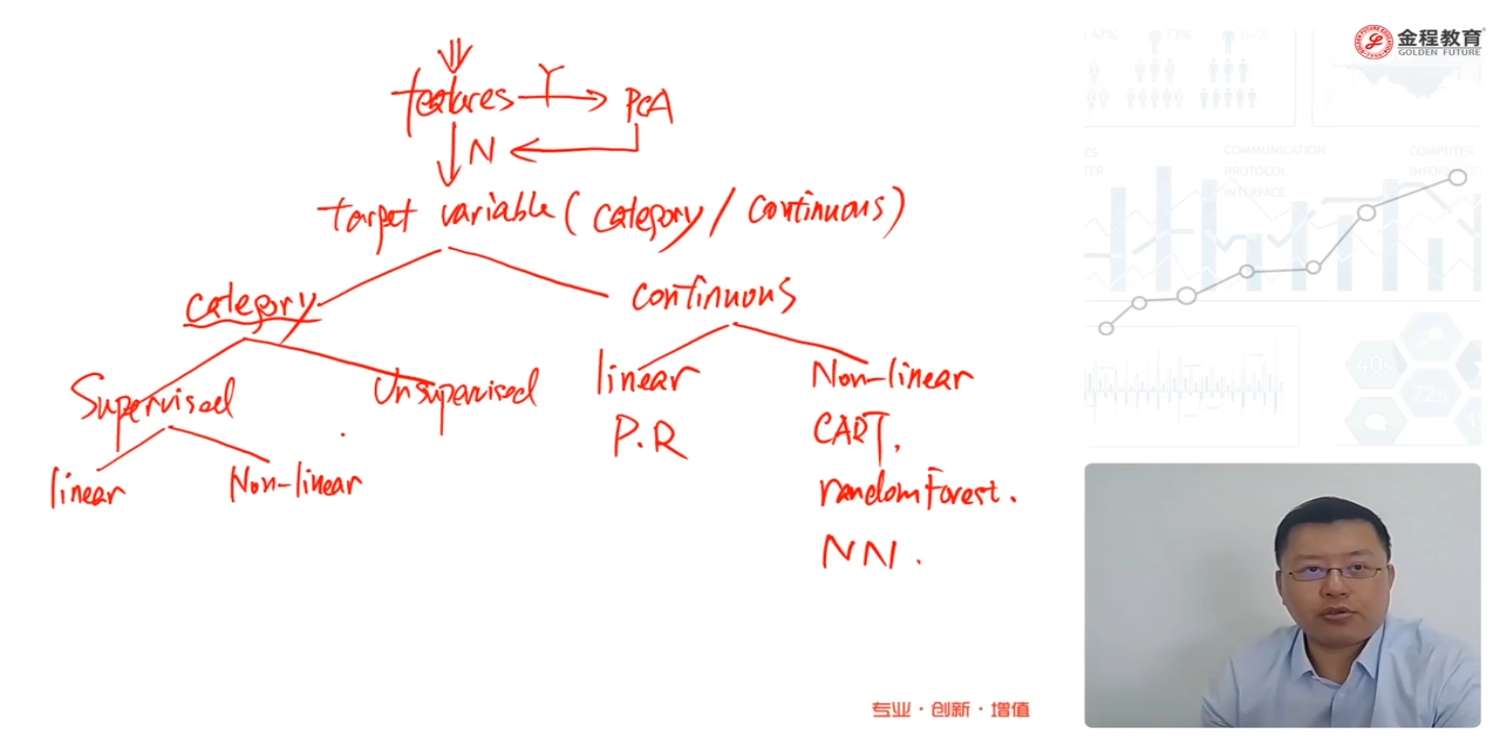 金程教育
GOLDEN FUTURE
features Y PCA
N
target variable (category / continuous)
category
continuous
Supervised
Unsupervised
linear
Non-linear
linear
P.R
Non-linear
CART.
random Forest.
NN.
COMMUNICATION
PROTOCOL
INTERFACE
COMPUTER
专业·创新·增值